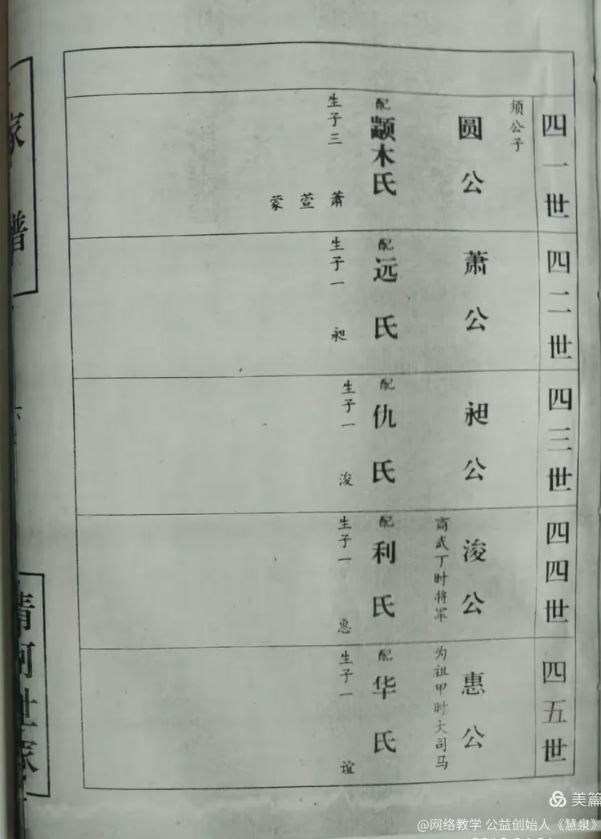 四一世
须公子
圆公
配
颛木氏
生子三
萧
萱
蒙
四二世
萧公
配
远氏
生子一
昶
四三世
昶公
配
仇氏
生子一
浚
四四世
浚公
商武丁时将军
配
利氏
生子一
惠
四五世
惠公
为祖甲时大司马
配
华氏
生子一
谊
家谱
清河世家
美篇
@网络教学 公益创始人《慧泉》